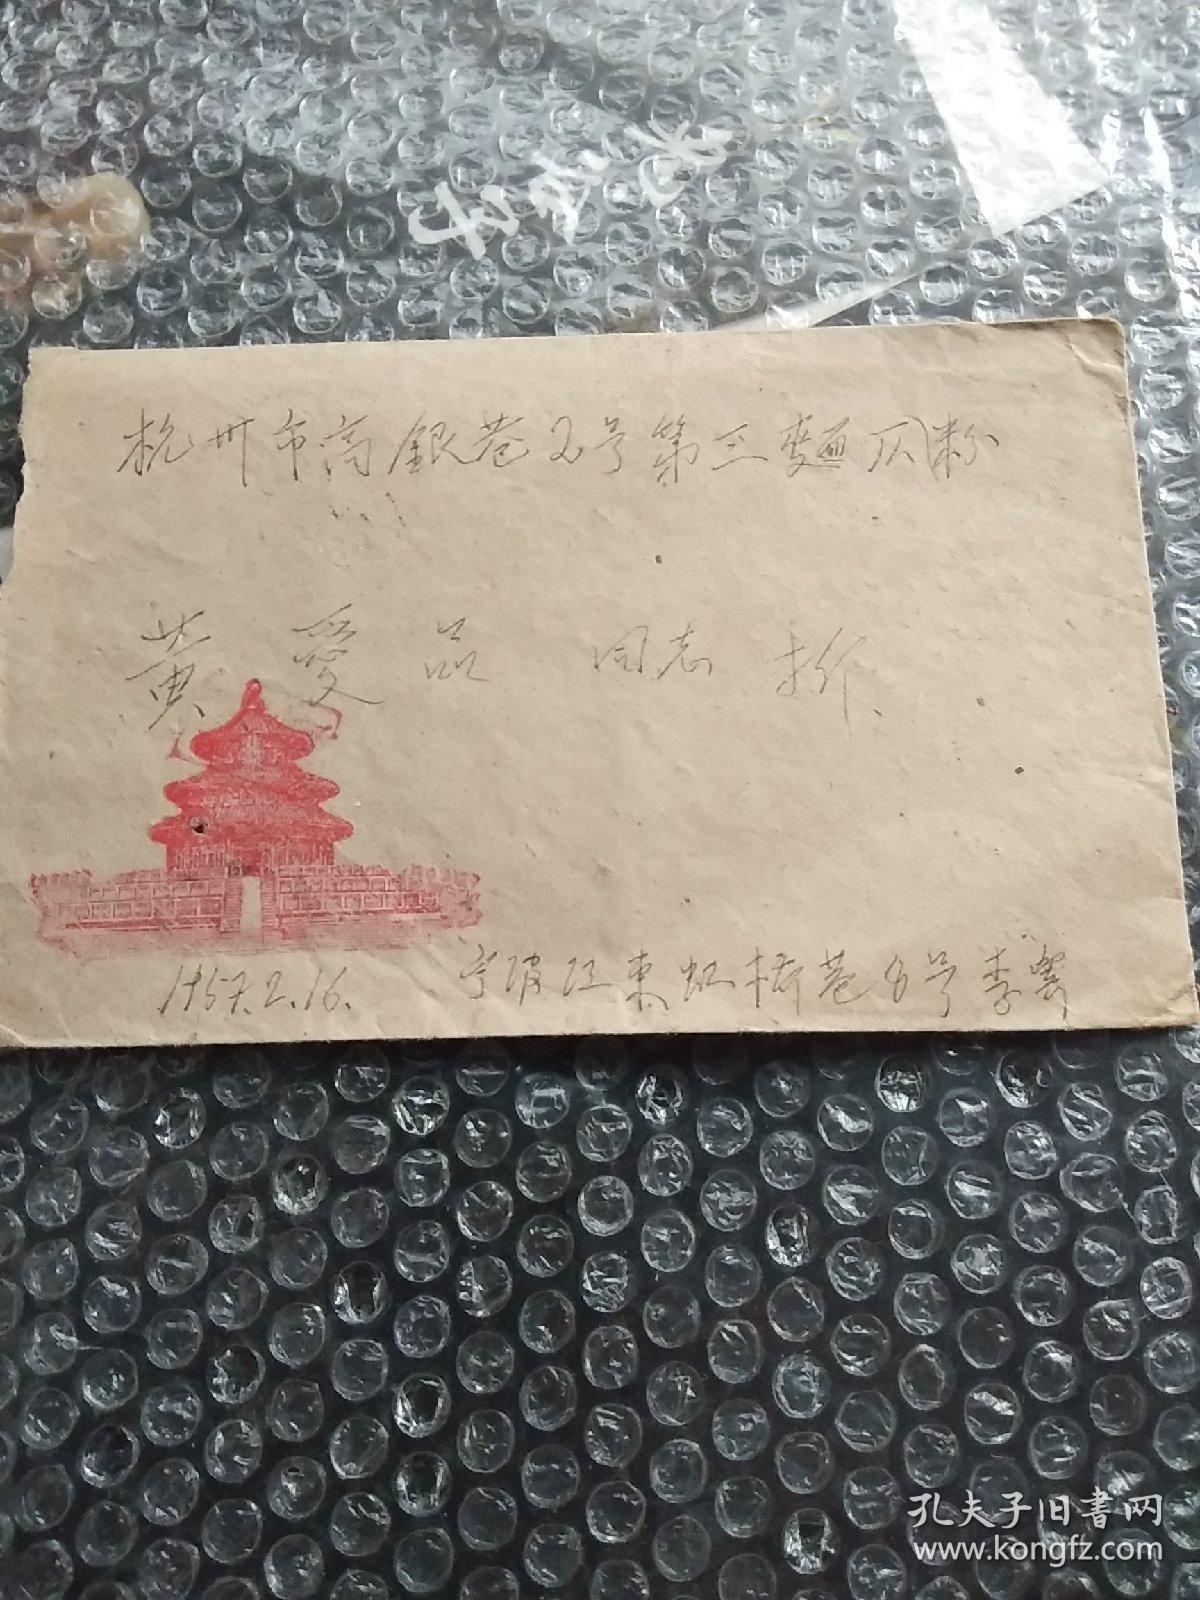 杭州市高銀巷2号第三麵灰粉
黄愛品 同志 拆
1957.2.16.
宁波江東虹橋巷8号李寄
孔夫子旧書网
www.kongfz.com